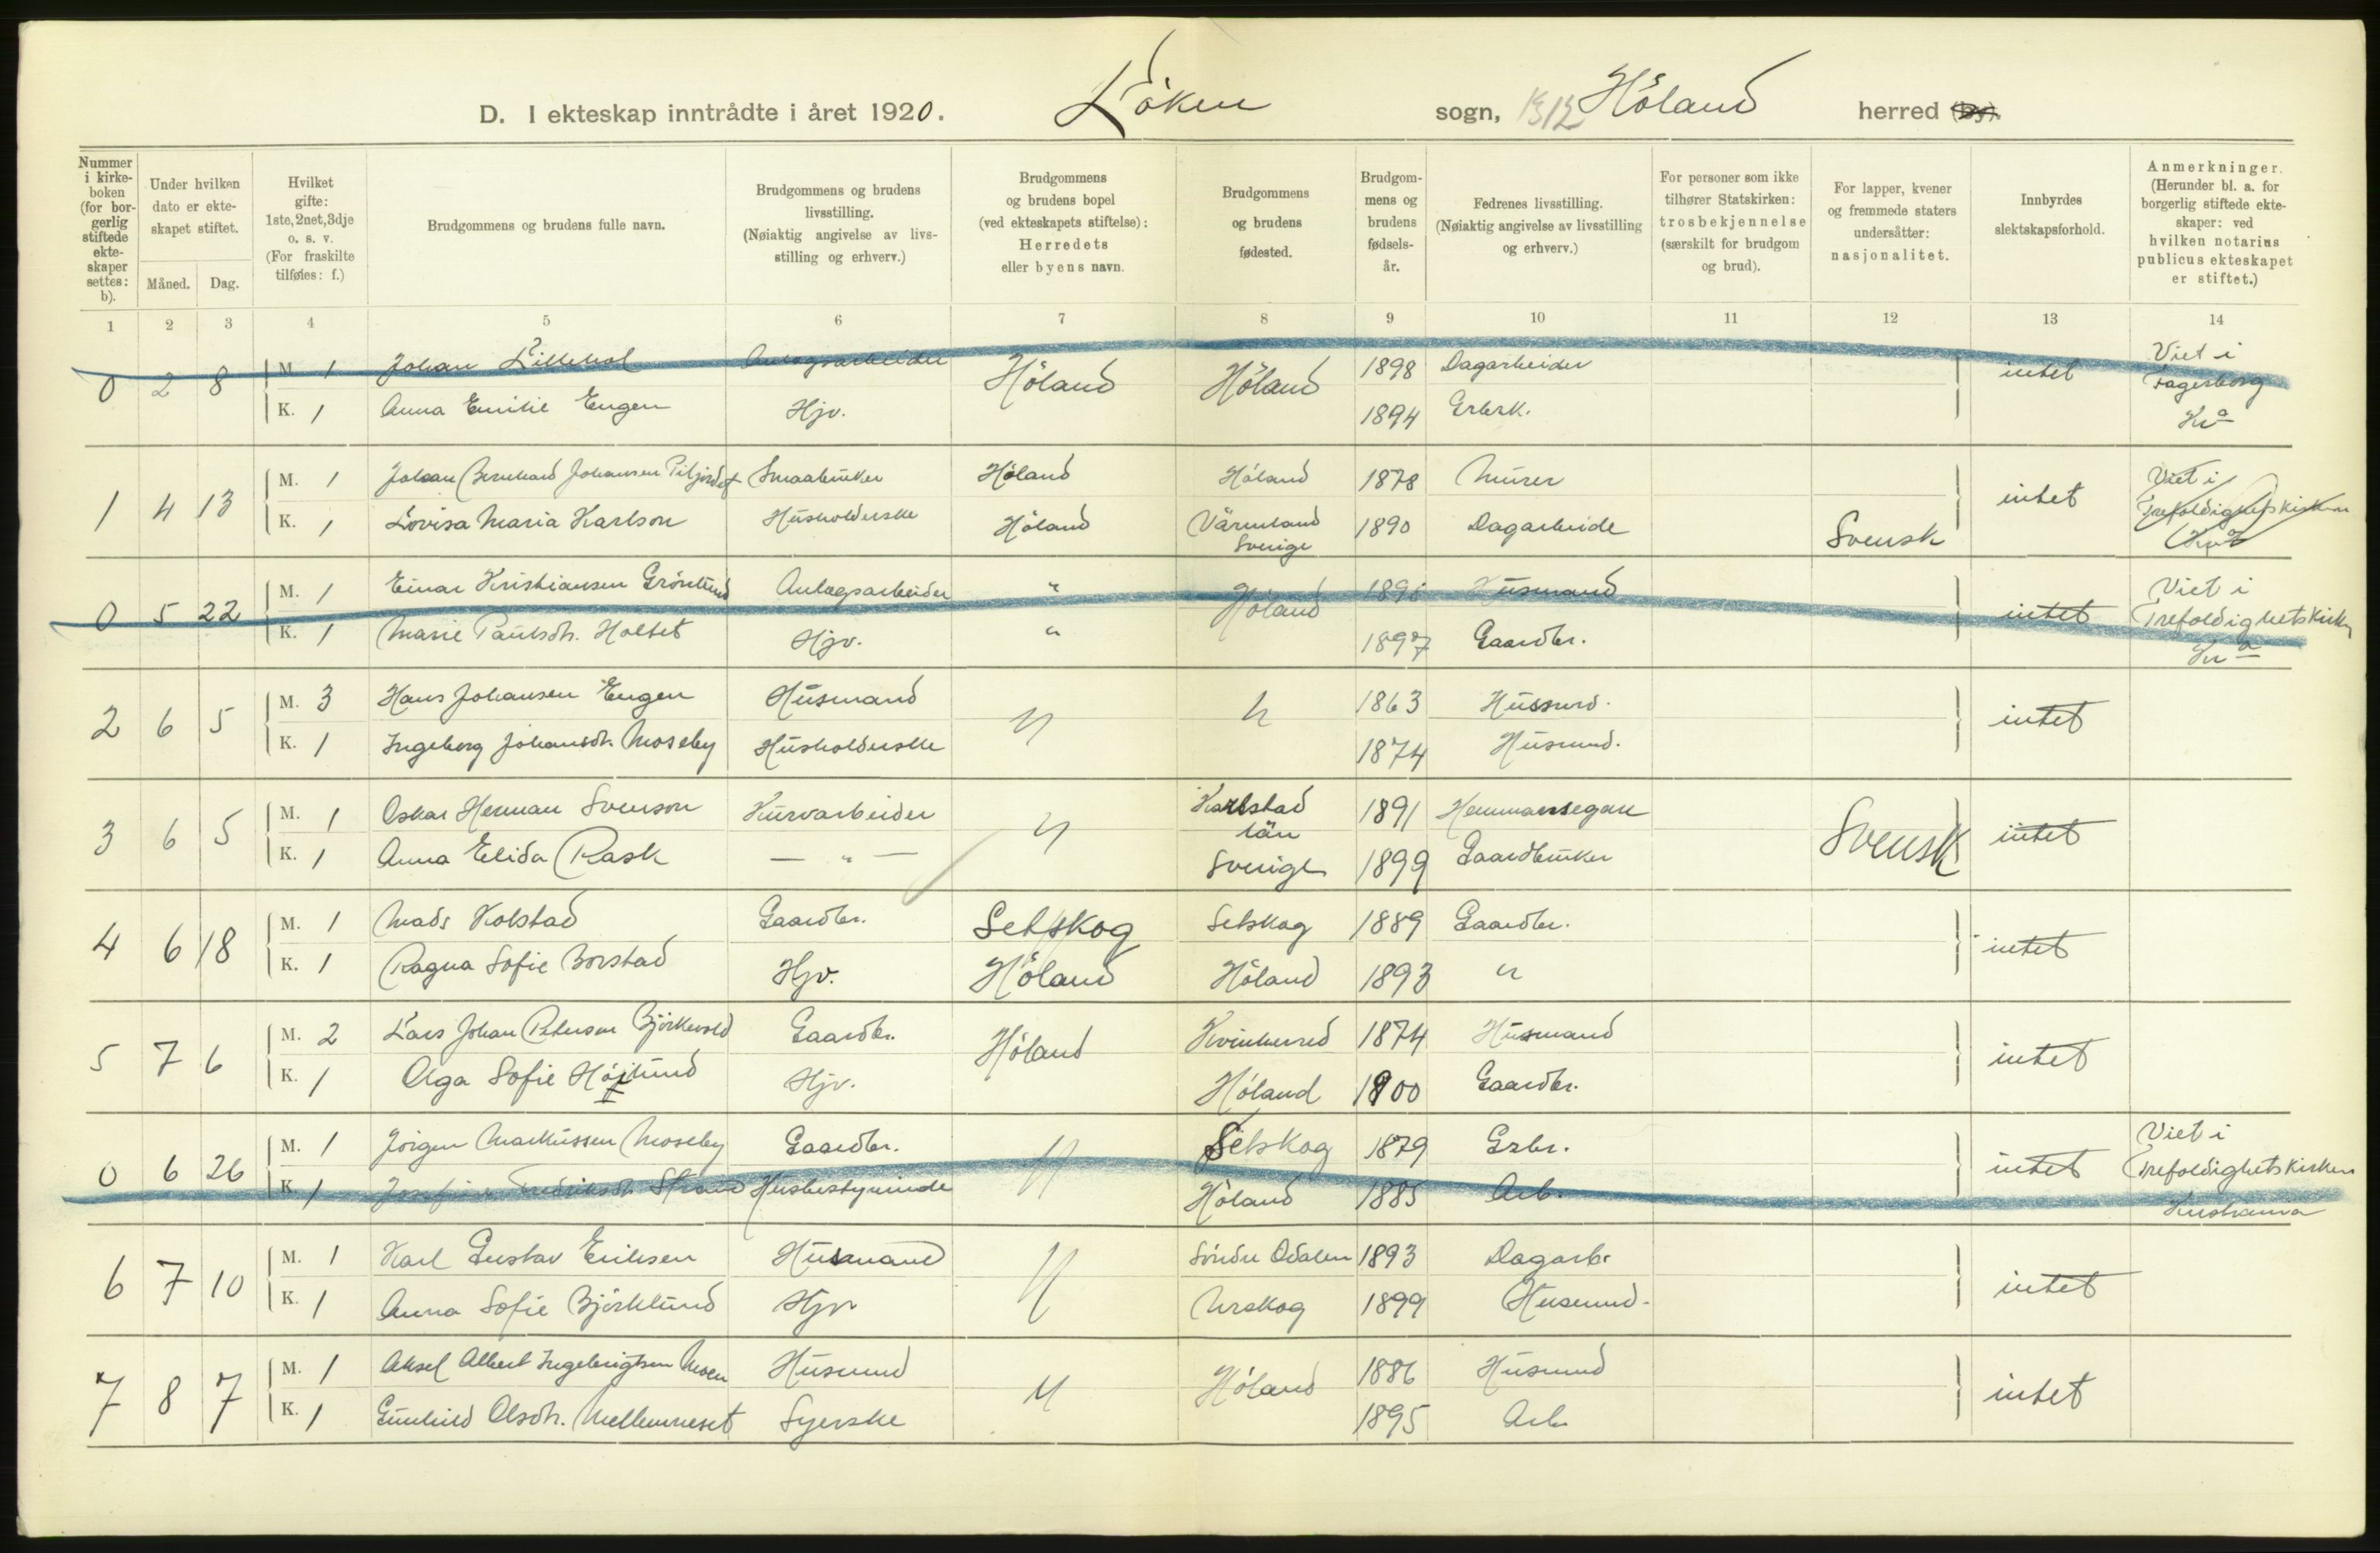 D. I ekteskap inntrådte i året 1920. Löken sogn, Höland herred (by).
Nummer i kirkeboken (for borgerlig stiftede ekteskaper settes: b).
Under hvilken dato er ekteskapet stiftet.
Måned. Dag.
Hvilket gifte: 1ste, 2net, 3dje o. s. v. (For fraskilte tilføies: f.)
Brudgommens og brudens fulle navn.
Brudgommens og brudens livsstilling. (Nøiaktig angivelse av livsstilling og erhverv.)
Brudgommens og brudens bopel (ved ekteskapets stiftelse): Herredets eller byens navn.
Brudgommens og brudens fødested.
Brudgommens og brudens fødselsår.
Fedrenes livsstilling. (Nøiaktig angivelse av livsstilling og erhverv.)
For personer som ikke tilhører Statskirken: trosbekjennelse (særskilt for brudgom og brud).
For lapper, kvener og fremmede staters undersåtter: nasjonalitet.
Innbyrdes slektskapsforhold.
Anmerkninger. (Herunder bl. a. for borgerlig stiftede ekteskaper: ved hvilken notarius publicus ekteskapet er stiftet.)
1 2 3 4 5 6 7 8 9 10 11 12 13 14
0 2 8 M. 1 Johan Anlægsarbeider Höland Höland 1898 Dagarbeider intet Viet i Fagerborg Kra
K. 1 Anna Emilie Engen Hjv. 1894 Grbrk.
1 4 13 M. 1 Johan Bernhard Johansen Smaabruker Höland Höland 1878 Murer intet Viet i Trefoldighetskirken Kra
K. 1 Lovisa Maria Karlson Husholderske Höland Värmland Sverige 1890 Dagarbeide Svensk
0 5 22 M. 1 Einar Kristiansen Grönlund Anlægsarbeider " Höland Husmand intet Viet i Trefoldighetskirken Kra
K. 1 Marie Paulsdh. Holtet Hjv. " 1897 Gaardbr.
2 6 5 M. 3 Hans Johansen Engen Husmand " " 1863 Husmd. intet
K. 1 Ingeborg Johansdh. Moseby Husholderske 1874 Husmd.
3 6 5 M. 1 Oskar Herman Svenson Kurvarbeider " Karlstad län Sverige 1891 Hemmansegare Svensk intet
K. 1 Anna Elida Rask — " — 1899 Gaardbruker
4 6 18 M. 1 Mads Kolstad Gaardbr. Setskog Setskog 1889 Gaardbr. intet
K. 1 Ragna Sofie Borstad Hjv. Höland Höland 1893 "
5 7 6 M. 2 Lars Johan Peterson Björkevold Gaardbr. Höland Kvinherred 1874 Husmand intet
K. 1 Olga Sofie Höilund Hjv. Höland 1900 Gaardbr.
0 6 26 M. 1 Jörgen Markussen Moseby Gaardbr. " Setskog 1879 Grbr. intet Viet i Trefoldighetskirken Kristiania
K. 1 Josefine Fredriksdh. Strand Husbestyrinde Höland 1885 Arb.
6 7 10 M. 1 Karl Gustav Eriksen Husmand " Söndre Odalen 1893 Dagarb. intet
K. 1 Anna Sofie Björklund Hjv Urskog 1899 Husmnd.
7 8 7 M. 1 Aksel Albert Ingebrigtsen Moen Husmnd " Höland 1886 Husmnd intet
K. 1 Gunhild Olsdh. Mellemneset Syerske 1895 Arb